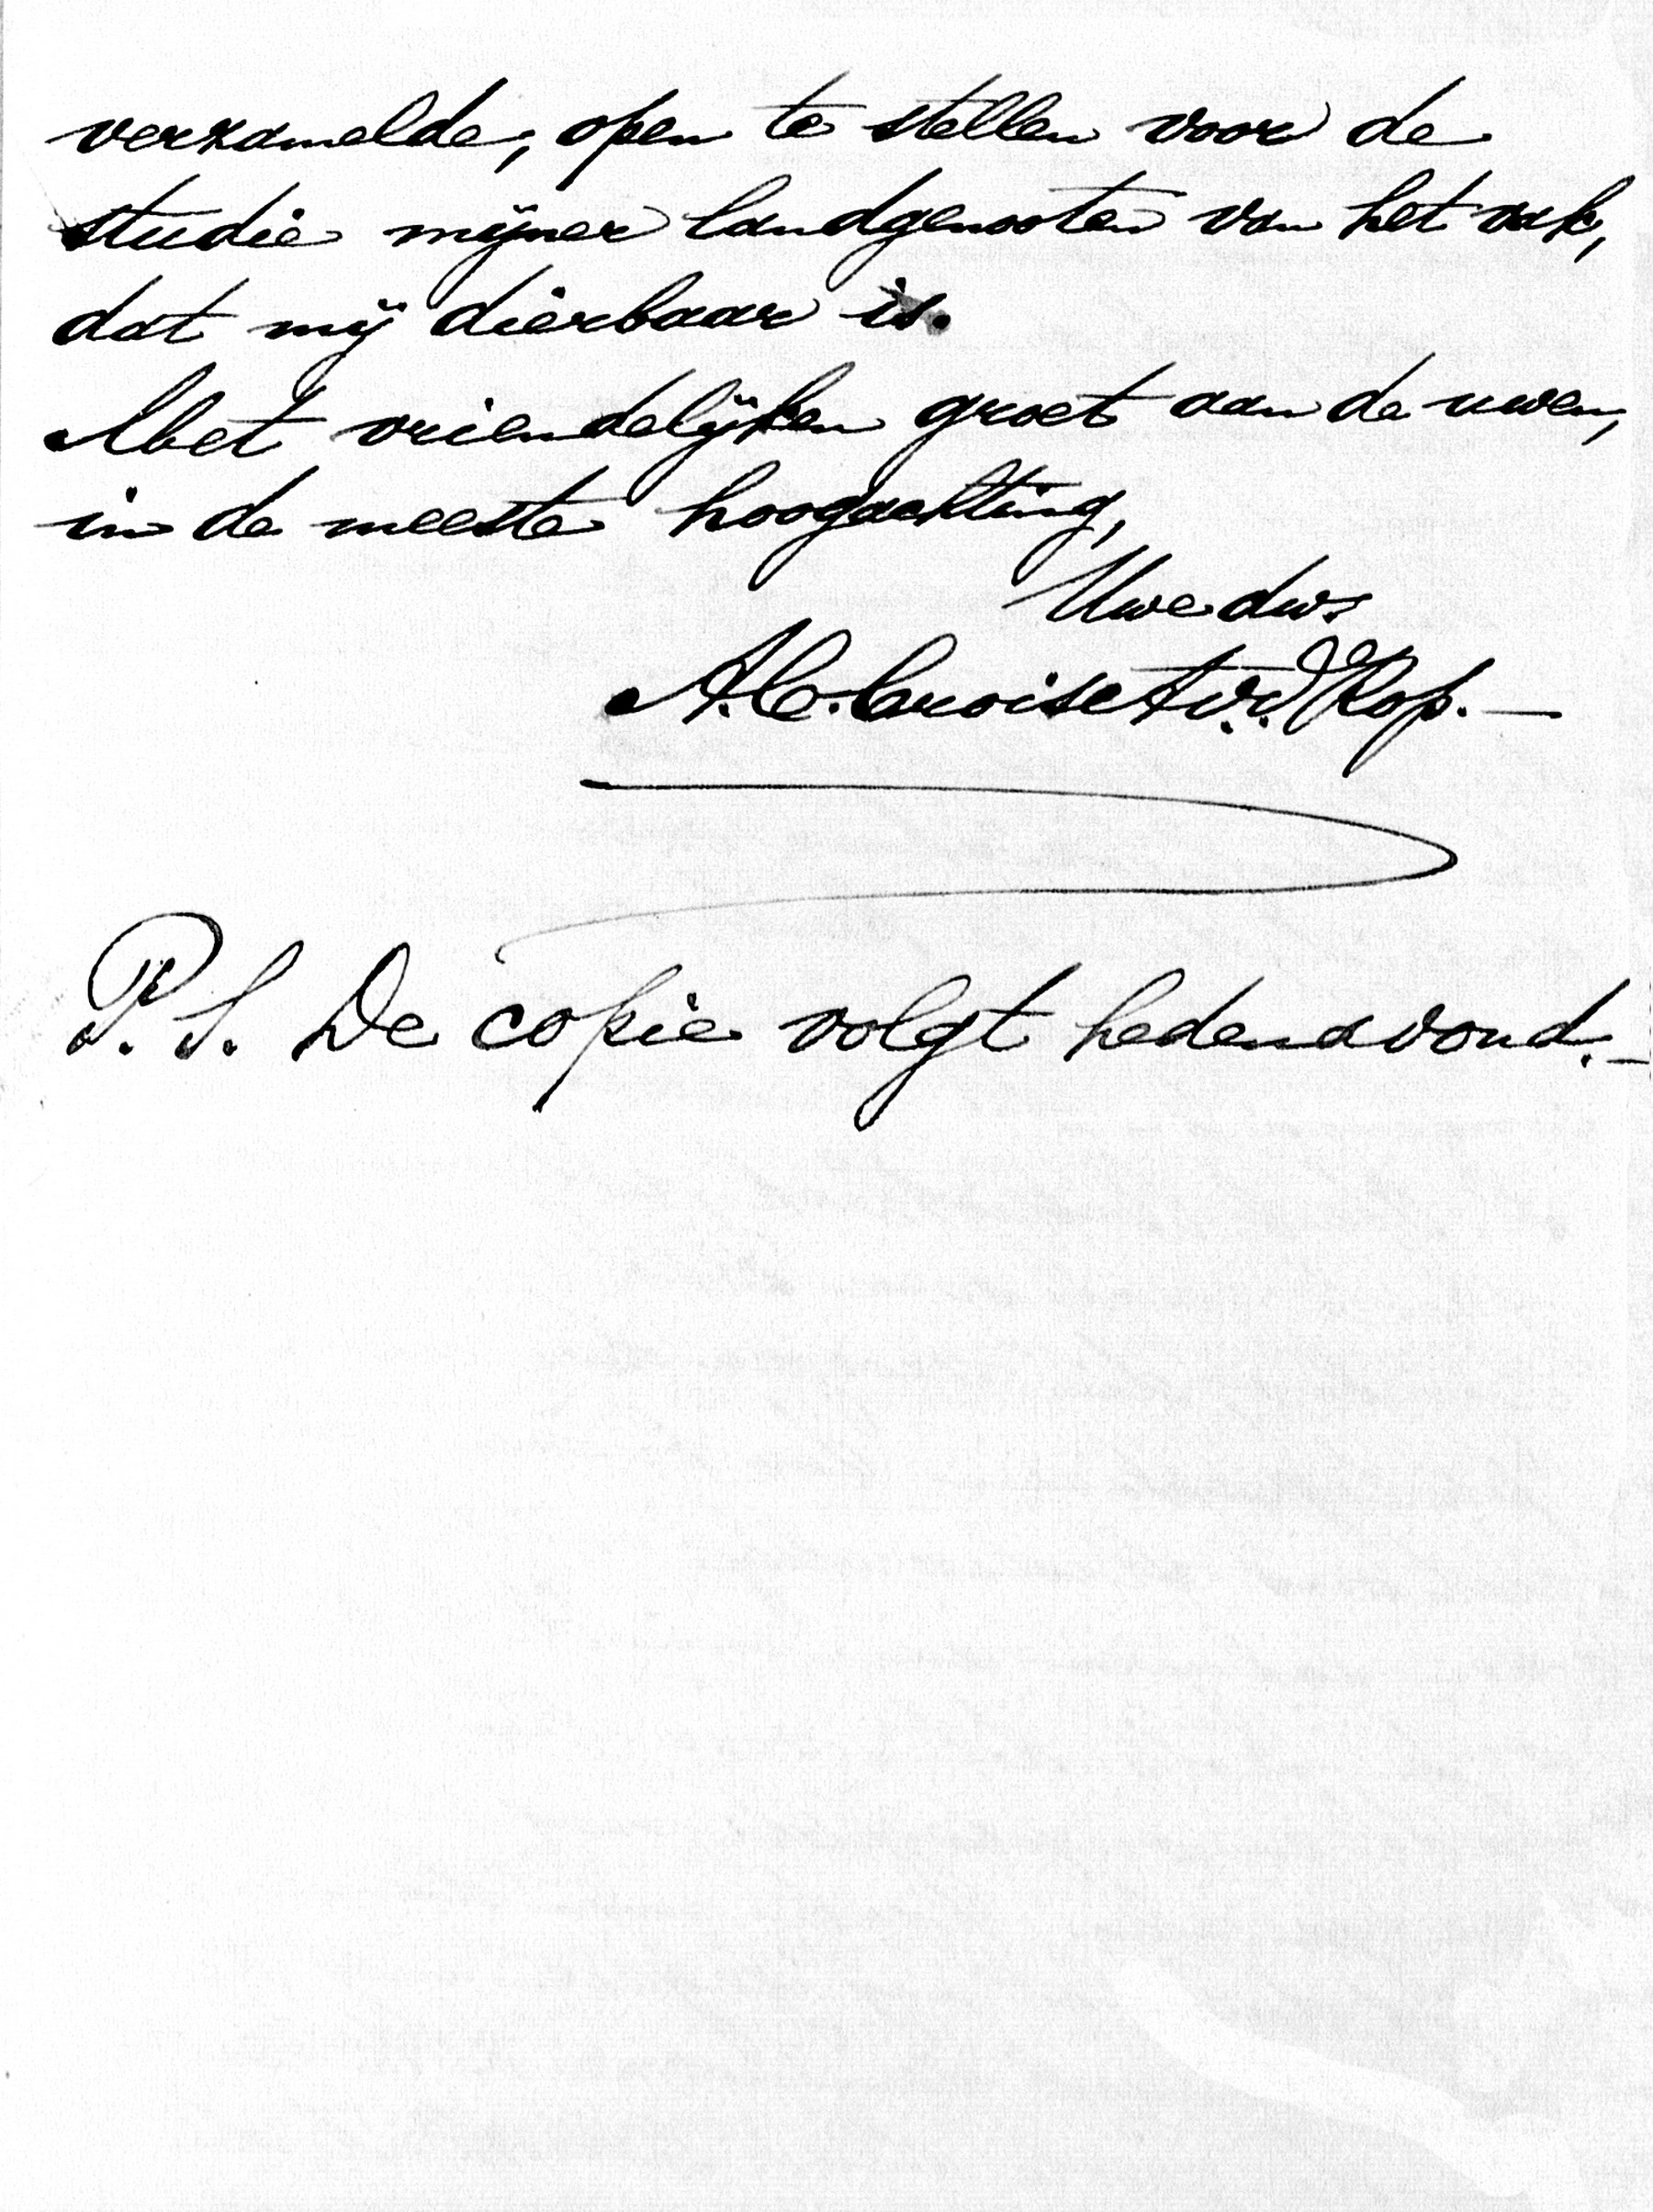 verzamelde, open te stellen voor de
studie mijner landgenooten van het vak,
dat mij dierbaar is.
Met vriendelijken groet aan de uwen,
in de meeste hoogachting,
Uwe dw.
A.C. Croiset v.d. Kop. —
P.S. De copie volgt hedenavond. —